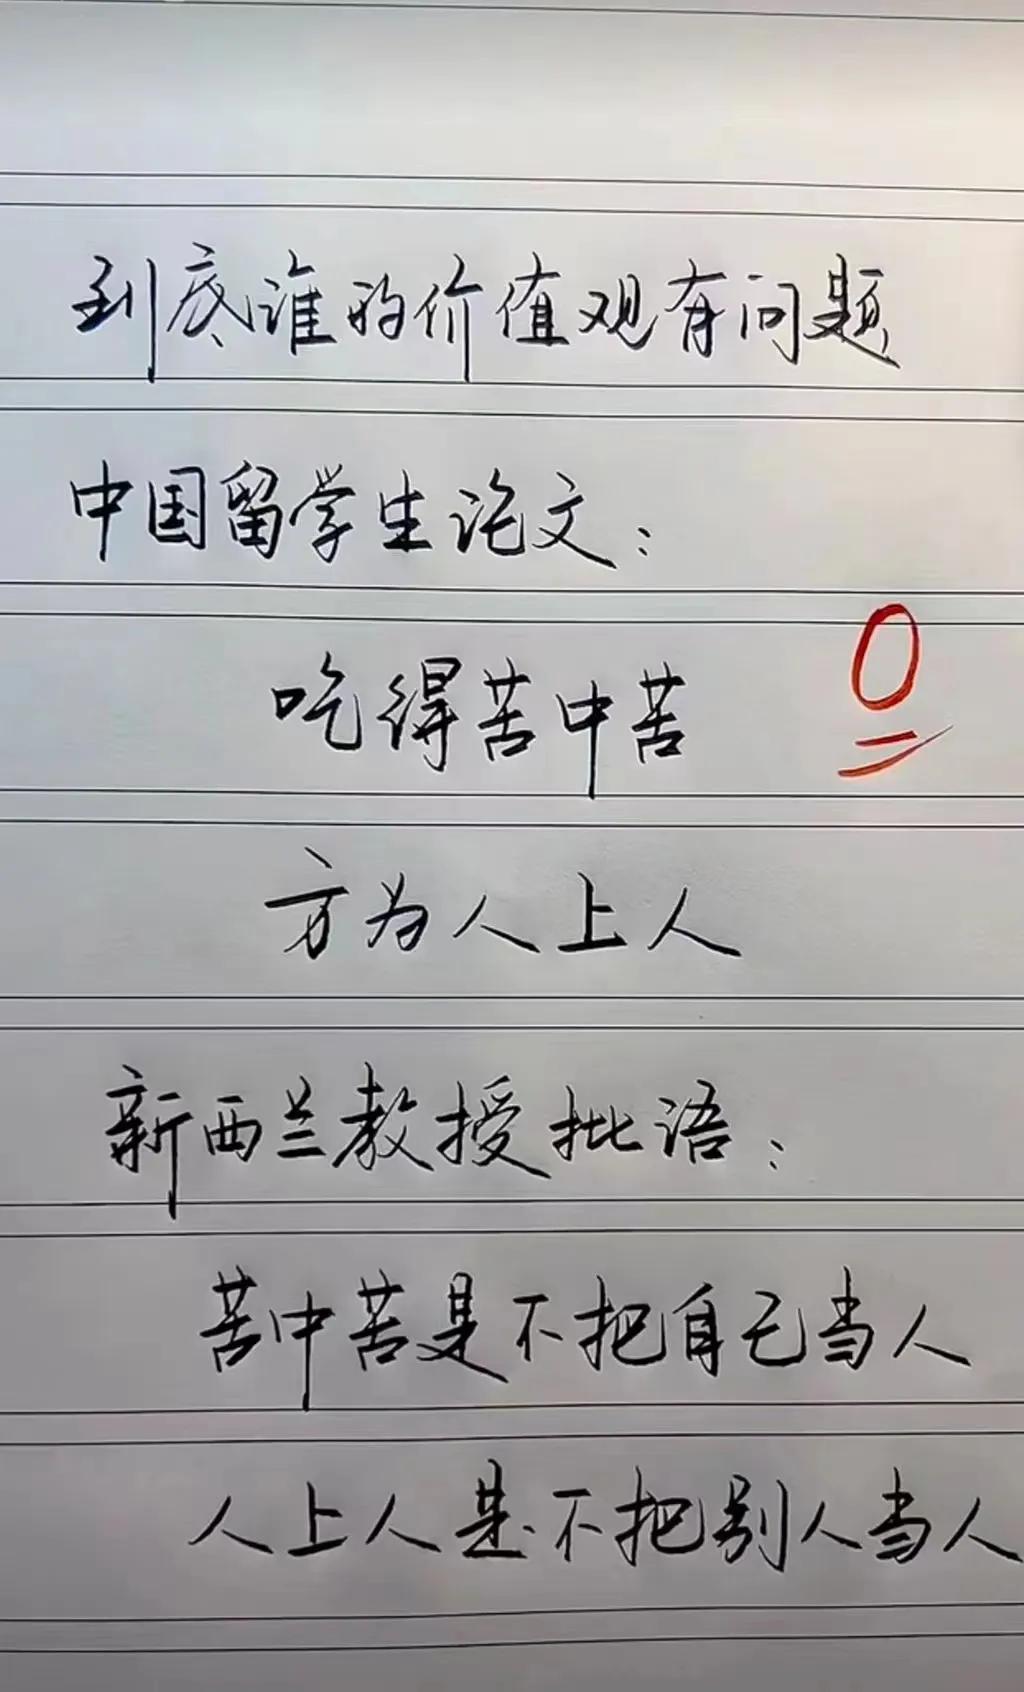 到底谁的价值观有问题
中国留学生论文:
吃得苦中苦
0
方为人上人
新西兰教授批语:
苦中苦是不把自己当人
人上人是不把别人当人